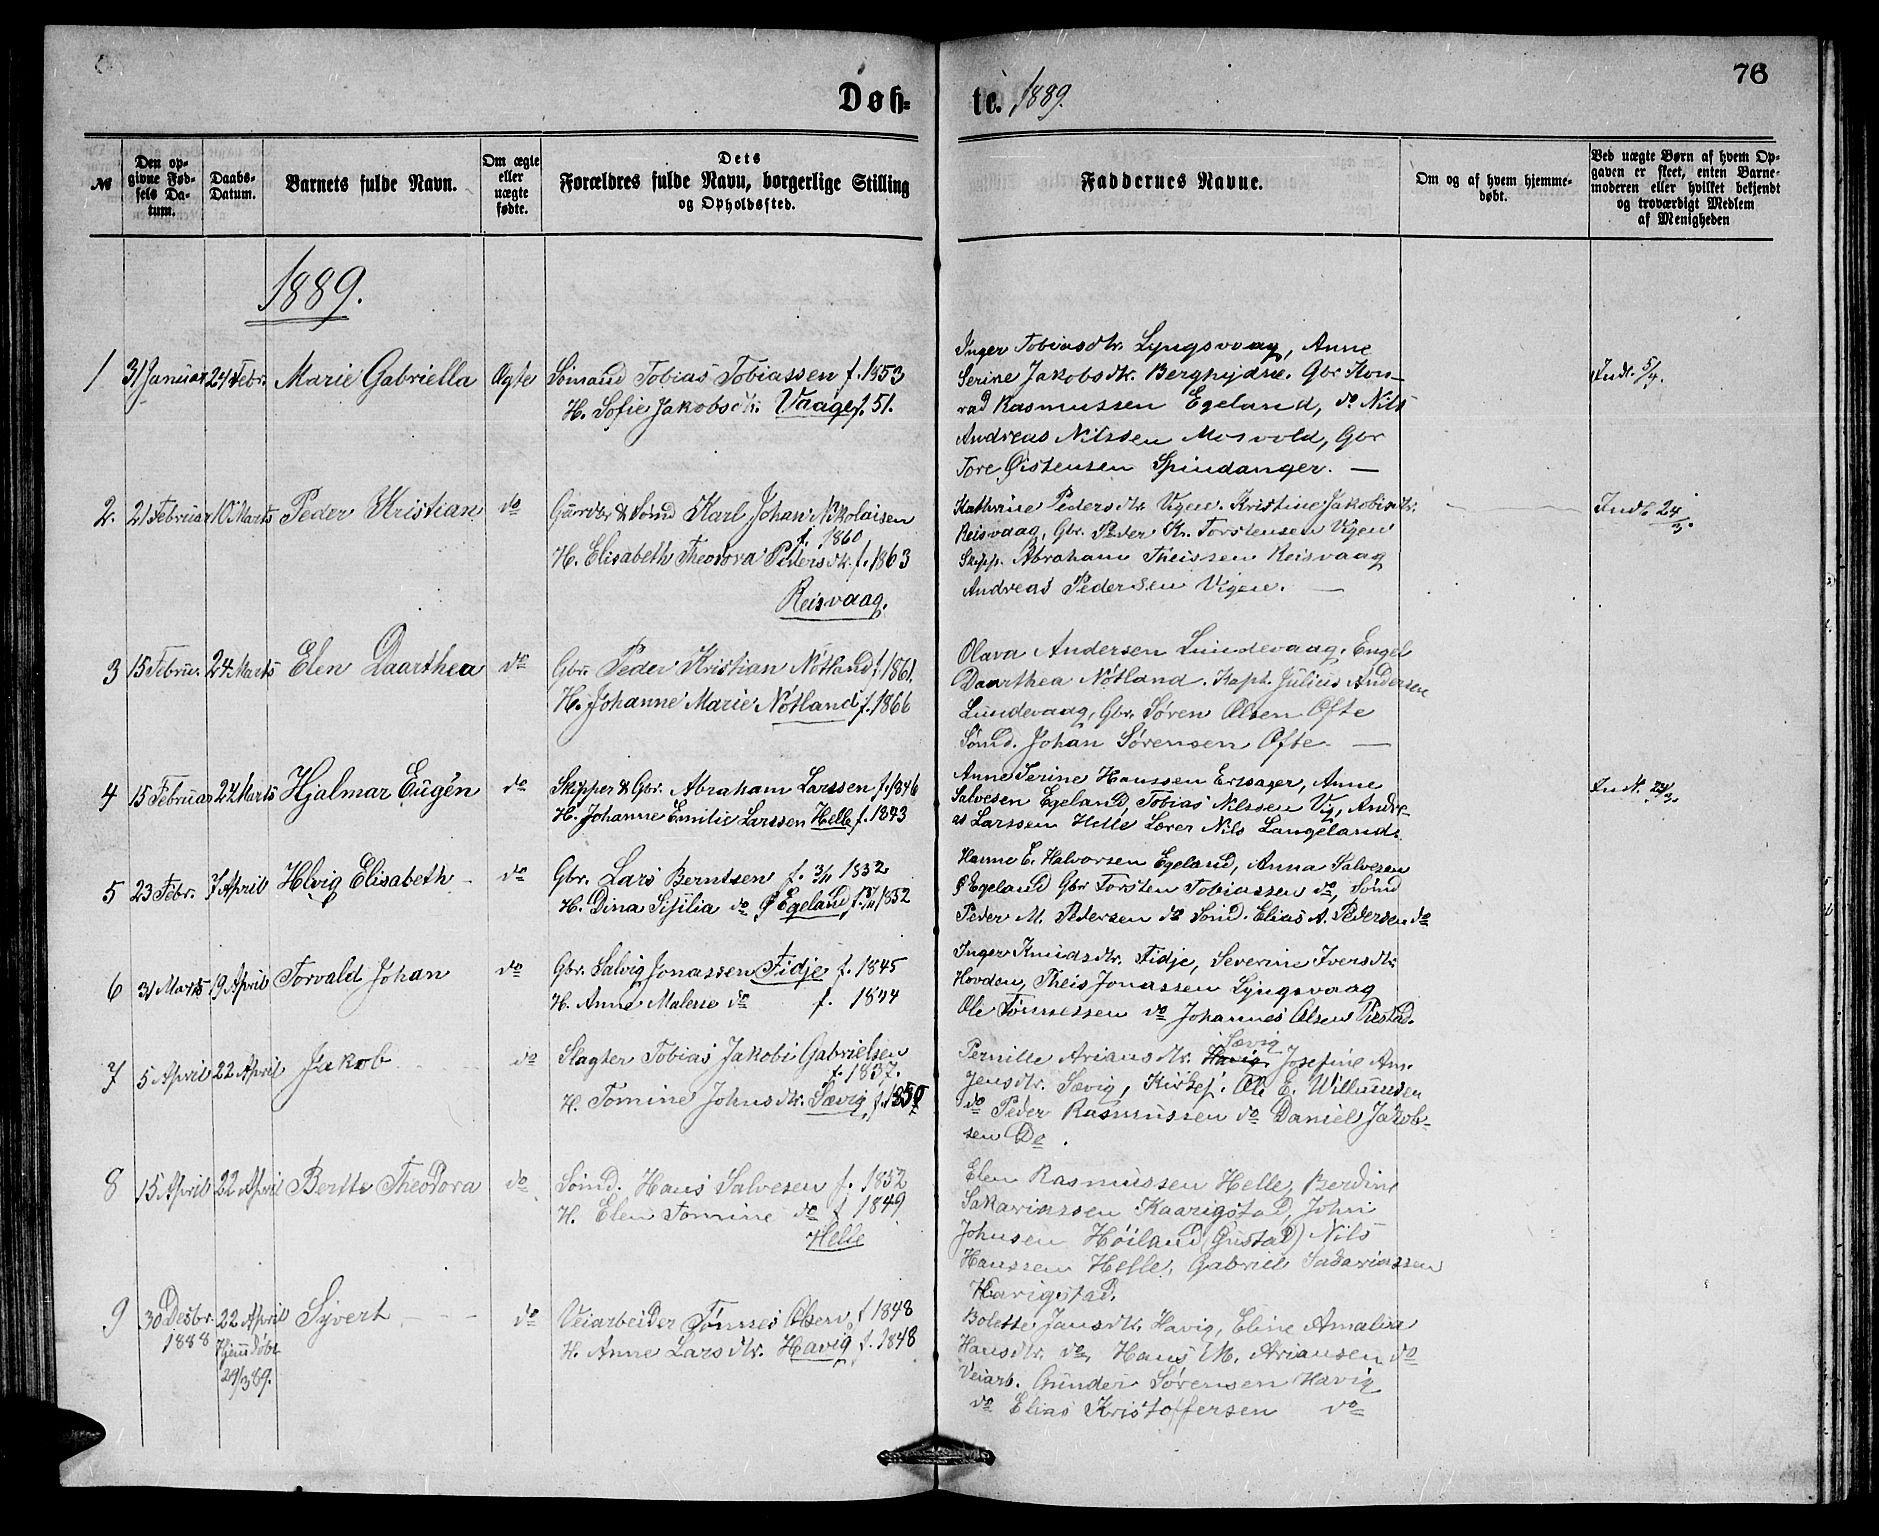 76
Døb-
te. 1889.
№
Den op-
givne Fød-
sels Da-
tum.
Daabs-
Datum.
Barnets fulde Navn.
Om ægte
eller
uægte
fødte.
Dets
Forældres fulde Navn, borgerlige Stilling
og Opholdssted.
Faddernes Navne.
Om og af hvem hjemme-
døbt.
Ved uægte Børn af hvem Op-
gaven er skeet, enten Barne-
moderen eller hvilket bekjendt
og troværdigt Medlem
af Menigheden
1889.
1 31 Januar 24 Febr. Marie Gabriella Ægte
Sømand Tobias Tobiassen f. 1853
H. Sofie Jakobsdtr. Vaage f. 51.
Inger Tobiasdtr. Lyngsvaag, Anne
Serine Jakobsdtr. Gbr. Kon-
rad Rasmussen Egeland, do Nils
Andreas Nilssen Mosvold, Gbr
Tore Øistensen Spindanger. —
Indt. 5/4.
2. 21 Februar 10 Marts Peder Kristian do
Gaardbr & Sømd Karl Johan Nikolaisen
f. 1860
H. Elisabeth Theodora Pedersdtr. f. 1863
Reisvaag.
Kathrine Pedersdtr. Vigen. Kristine Jakobsdtr.
Reisvaag, Gbr. Peder Kr. Torstensen Vigen
Skipp. Abraham Theissen Reisvaag
Andreas Pedersen Vigen. —
Indt. 24/3.
3 15 Febru. 24 Marts Elen Daarthea do
Gbr. Peder Kristian Nøtland f. 1861.
H. Johanne Marie Nøtland f. 1866
Olava Andersen Lundevaag. Engel
Daarthea Nøtland. Kapt. Julius Andersen
Lundevaag, Gbr. Søren Olsen Ofte
Sømd. Johan Sørensen Ofte. —
4 15 Februar 24 Marts Hjalmar Eugén do
Skipper & Gbr. Abraham Larssen f. 1846
H. Johanne Emilie Larssen Helle f. 1843
Anne Serine Hanssen Ersager, Anne
Salvesen Egeland, Tobias Nilssen Vig, Andre-
as Larssen Helle Lærer Nils Langeland.
Indt. 23/3.
5 23 Febr. 7 April Helvig Elisabeth do
Gbr. Lars Berntsen f. 3/11 1832
H. Dina Sisilia do Ø Egeland f. 1832
Hanne E. Halvorsen Egeland, Anna Salvesen
Ø Egeland Gbr Torsten Tobiassen do, Sømd
Peder M. Pedersen do Sømd. Elias A. Pedersen do
6 31 Marts 19 April Torvald Johan do
Gbr. Salvig Jonassen Fidje f. 1845
H. Anne Malene do f. 1844
Inger Knudsdtr. Fidje, Severine Iversdtr
Hovden, Theis Jonassen Lyngsvaag
Ole Tønnessen do Johannes Olsen
7 5 April 22 April Jakob do
Slagter Tobias Jakobi Gabrielsen
f. 1837.
H. Tomine Johnsdtr. Sævig f. 1850
Sævig
Pernille Ariansdtr. Havig Josefine Am-
Jensdtr. Sævig, Kirkesj. Ole E. Willumsen
do Peder Rasmussen do Daniel Jakob-
sen Do.
8 15 April 22 April Berte Theodora do
Sømd. Hans Salvesen f. 1852
H. Elen Tomine do f 1849
Helle
Elen Rasmussen Helle, Berdine
Sakariassen Kaarigstad, John
Johnsen Høiland (Grustad) Nils
Hanssen Helle, Gabriel Sakariassen
Karigstad.
9 30 Desbr. 22 April Syvert do
1888 Hjemdøbt
29/3 89.
Veiarbeider Tønnes Olsen f 1848
H. Anne Larsdtr. Havig f. 1848
Bolette Jansdtr. Havig, Eline Amalia
Hansdtr. do, Hans M. Ariansen do
Veiarb. Gunder Sørensen Havig
do Elias Kristoffersen do